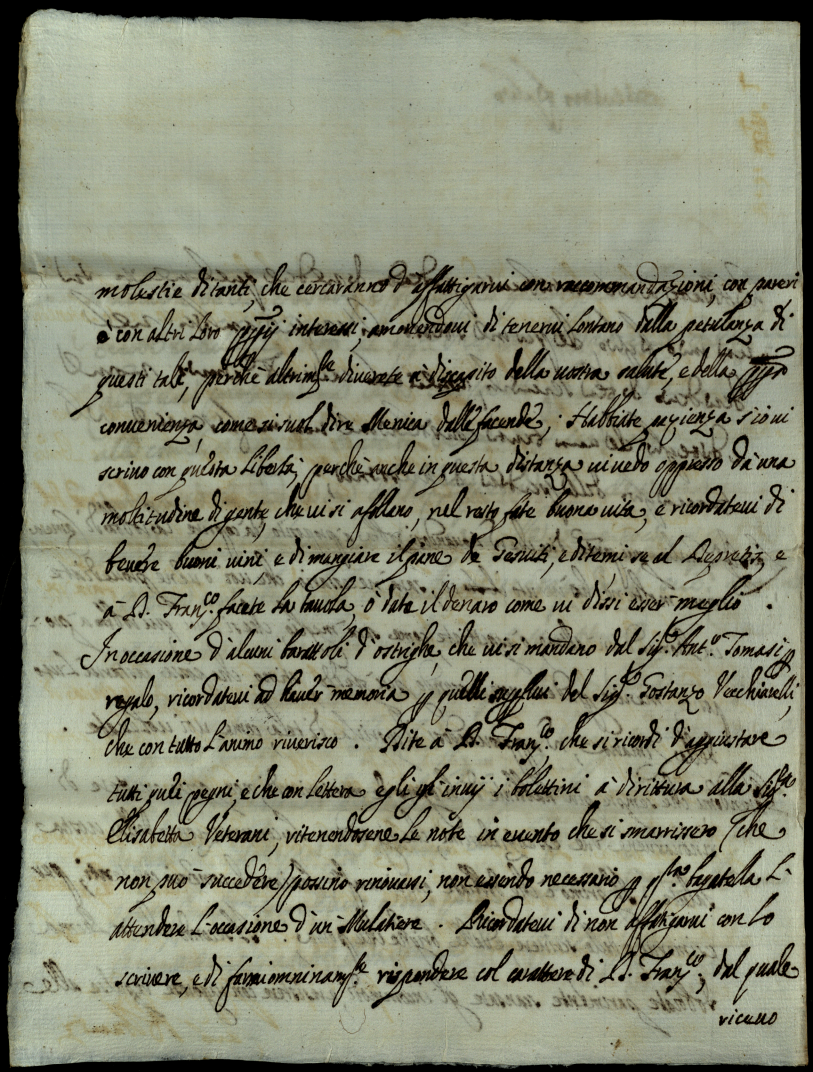 molestie di tanti, che cercaranno d'affattigarui con raccommandazioni, con pareri
e con altri loro interessi; amonendoui di tenerui lontano dalla petulanza di
questi tali, perche altrim.te diuerete à discapito della uostra salute, e della
conuenienza, come si suol dire Menica delle facende; Habbiate pazienza s'io ui
scriuo con questa libertà, perche anche in questa distanza ui uedo oppresso da una
moltitudine di gente, che ui si afollano, nel resto fate buona uita, e ricordateui di
beuere buoni uini, e di mangiare il pane de Gesuiti, e ditemi se al e
à D. Fran.co facete la tauola, ò date il denaro come ui dissi esser meglio.
In occasione d'alcuni barattoli d'ostrighe, che ui si mandano dal Sig.r Ant.o Tomasi p
regalo, ricordateui ad hauer memoria p quelli del Sig.r Gostanzo Vecchiarelli,
che con tutto l'animo riuerisco. Dite à D. Fran.co che si ricordi d'aggiustare
tutti quei pegni, e che con lettera egli gl'inuij i bolettini à dirittura alla Sig.ra
Elisabetta Veterani, ritenendosene le note in euento che si smarrissero (che
non può succedere) possino rinouarsi, non essendo necessario p bagatella l'
attendere l'occasione d'un Mulatiere. Ricordateui di non affatigarui con lo
scriuere, e di farmi omninam.te rispondere col carattere di D. Fran.co, dal quale
riceuo